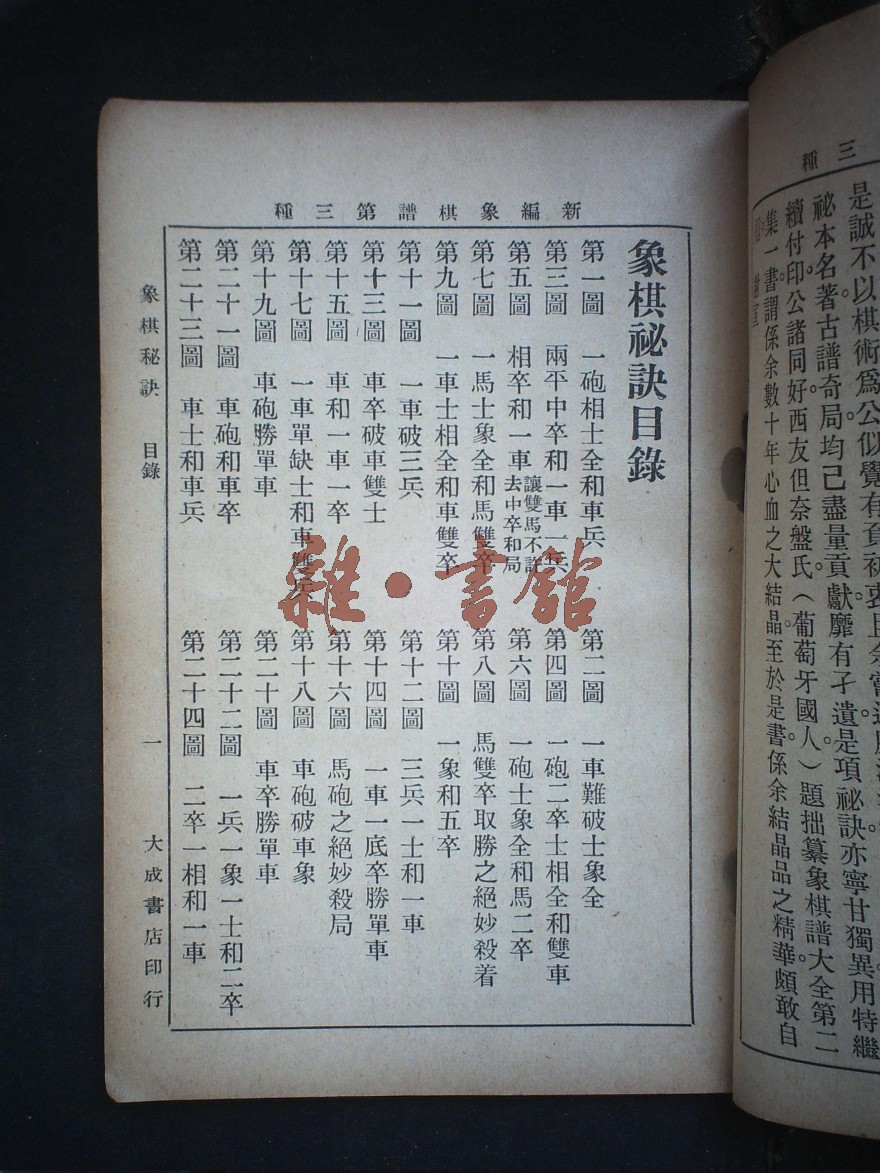 新編象棋譜第三種
象棋祕訣目錄
第一圖　一砲相士全和車兵
第二圖　一車難破士象全
第三圖　兩平中卒和一車一兵
第四圖　一砲二卒士相全和雙車
第五圖　相卒和一車
讓雙馬不許
去中卒和局
第六圖　一砲士象全和馬二卒
第七圖　一馬士象全和馬雙卒
第八圖　馬雙卒取勝之絕妙殺着
第九圖　一車士相全和車雙卒
第十圖　一象和五卒
第十一圖　一車破三兵
第十二圖　三兵一士和一車
第十三圖　車卒破車雙士
第十四圖　一車一底卒勝單車
第十五圖　車和一車一卒
第十六圖　馬砲之絕妙殺局
第十七圖　一車單缺士和車雙兵
第十八圖　車砲破車象
第十九圖　車砲勝單車
第二十圖　車卒勝單車
第二十一圖　車砲和車卒
第二十二圖　一兵一象一士和二卒
第二十三圖　車士和車兵
第二十四圖　二卒一相和一車
象棋秘訣　目錄
一
大成書店印行
三種
是誠不以棋術爲公似覺有負初衷且余嘗
祕本名著古譜奇局。均已盡量貢獻。靡有孑遺。是項祕訣亦寧甘獨異用特繼
續付印。公諸同好。西友但奈盤氏（葡萄牙國人。）題拙纂象棋譜大全第二
集一書。謂係余數十年心血之大結晶。至於是書係余結晶品之精華。頗敢自
雜·書館